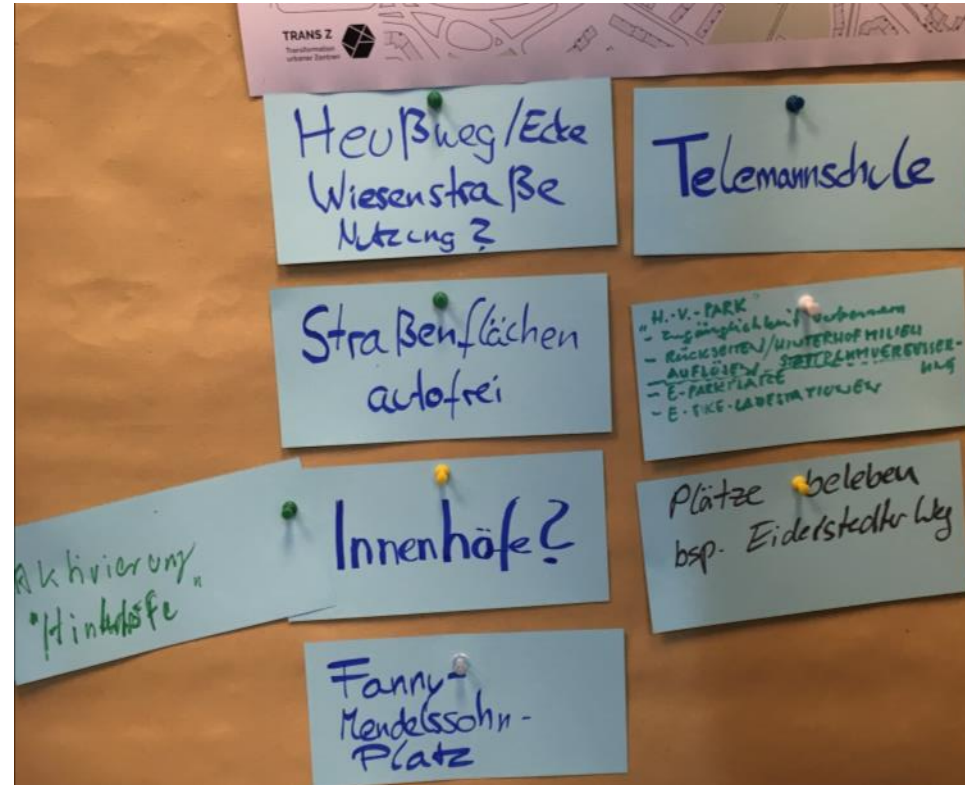 TRANS Z
Transformation
urbaner Zentren
Heußweg/Ecke
Wiesenstraße
Nutzung?
Telemannschule
Straßenflächen
autofrei
"H.-V.-PARK"
- Zugänglichkeit verbessern
- RÜCKSEITEN/HINTERHOFMILIEU
AUFLÖSEN
- E-PARKPLÄTZE
- E-BIKE-LADESTATIONEN
Aktivierung
"Hinterhöfe"
Innenhöfe?
Plätze beleben
bsp. Eiderstedter Weg
Fanny-
Mendelssohn-
Platz